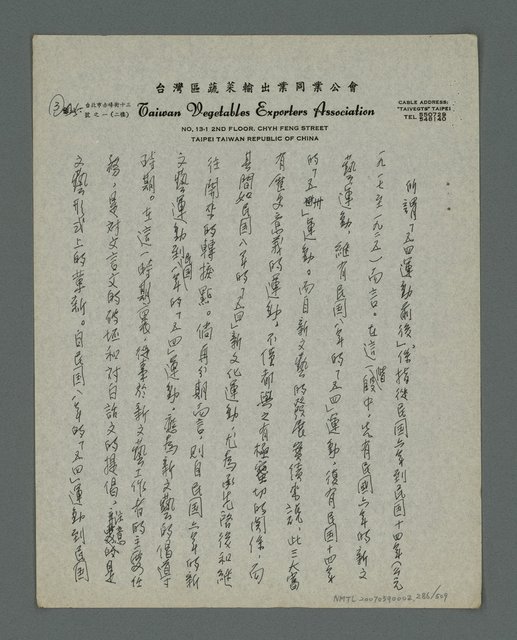 台灣區蔬菜輸出業同業公會
台北市赤峰街十三
號之一(二樓)
Taiwan Vegetables Exporters Association
NO. 13-1 2ND FLOOR, CHYH FENG STREET
TAIPEI TAIWAN REPUBLIC OF CHINA
CABLE ADDRESS:
"TAIVEGTS" TAIPEI
TEL 550729
548140
所謂「五四運動前後」係指從民國六年到民國十四年(公元
一九一七至一九二五)而言。在這一階段中,先有民國六年的新文
藝運動,繼有民國八年的「五四」運動,復有民國十四年
的「五卅」運動。而自新文藝的發展實績來說,此三大富
有歷史意義的運動,不僅都與之有極密切的關係,而
其間如民國八年的「五四」新文化運動,尤為承先啓後和繼
往開來的轉捩點。倘再分期而言,則自民國六年的新
文藝運動到民國八年的「五四」運動,應為新文藝的倡導
時期。在這一時期裏,從事於新文藝工作者的主要任
務,是對文言文的破壞和對白話文的提倡,注意的是
文藝形式上的革新。自民國八年的「五四」運動到民國
NMTL 20070590002 286/509